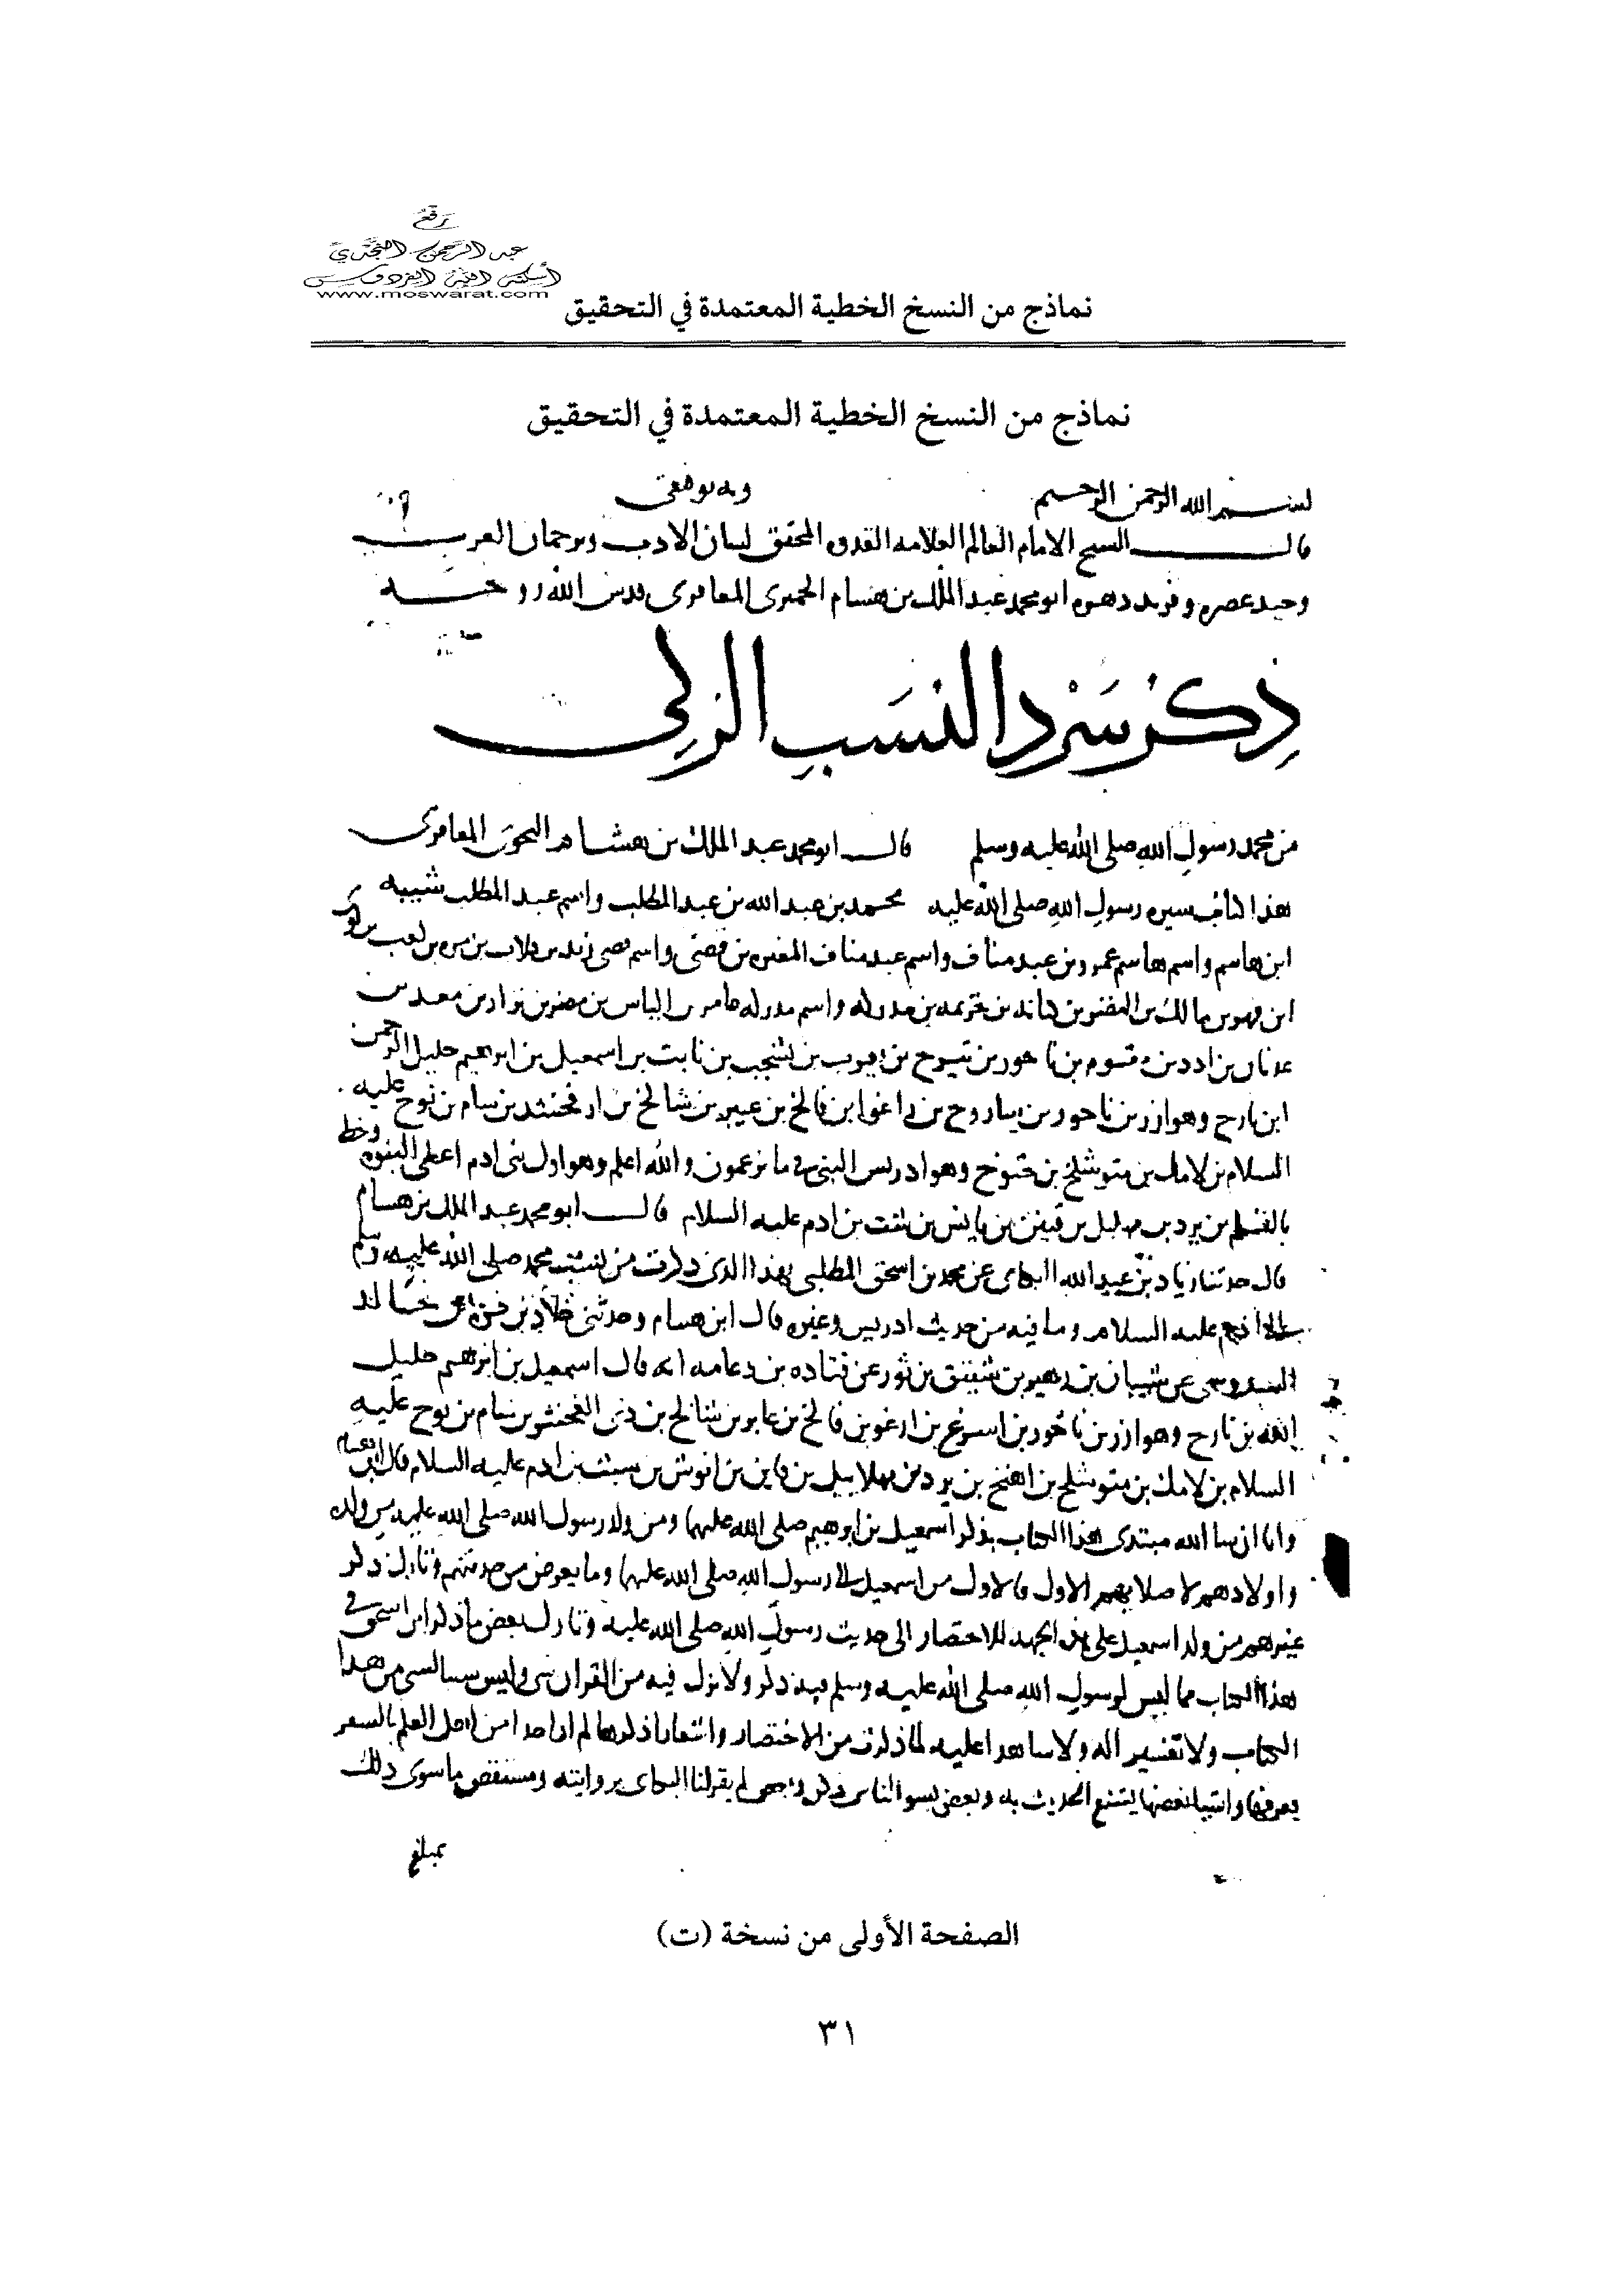 رفع
عبد الرحمن النجدي
أسكنه الله الفردوس
www.moswarat.com
نماذج من النسخ الخطية المعتمدة في التحقيق
نماذج من النسخ الخطية المعتمدة في التحقيق
بسم الله الرحمن الرحيم وبه توفيقي
قال الشيخ الامام العالم العلامه القدوه المحقق لسان الادب وترجمان العرب
وحيد عصره وفريد دهره ابو محمد عبد الملك بن هشام الحميرى المعافرى قدس الله روحه
ذكر سرد النسب الزكي
من محمد رسول الله صلى الله عليه وسلم قال ابو محمد عبد الملك بن هشام النحوى المعافرى
هذا كتاب سيره رسول الله صلى الله عليه محمد بن عبد الله بن عبد المطلب واسم عبد المطلب شيبه
ابن هاشم واسم هاشم عمرو بن عبد مناف واسم عبد مناف المغيره بن قصى واسم قصى زيد بن كلاب بن مره بن كعب بن لوى
ابن فهر بن مالك بن النضر بن كنانه بن خزيمه بن مدركه واسم مدركه عامر بن الياس بن مضر بن نزار بن معد بن
عدنان بن ادد بن مقوم بن ناحور بن تيرح بن يعرب بن يشجب بن نابت بن اسمعيل بن ابرهيم خليل الرحمن
ابن تارح وهو ازر بن ناحور بن ساروح بن راغوا بن فالخ بن عيبر بن شالخ بن ارفخشد بن سام بن نوح عليه
السلام بن لامك بن متوشلخ بن خنوخ وهو ادريس النبى فى ما يزعمون والله اعلم وهو اول بنى ادم اعطى النبوه وخط
بالقلم بن يرد بن مهليل بن قينن بن يانش بن شت بن ادم عليه السلام قال ابو محمد عبد الملك بن هشام
قال حدثنا زياد بن عبد الله البكاى عن محمد بن اسحق المطلبى بهذا الذى ذكرت من نسب محمد صلى الله عليه وسلم
الى ادم عليه السلام وما فيه من حديث ادريس وغيره قال ابن هشام وحدثنى خلاد بن قره عن خالد
السدوسى عن شيبان بن زهير بن شقيق بن ثور عن قتاده بن دعامه انه قال اسمعيل بن ابرهيم خليل
الله بن تارح وهو ازر بن ناحور بن اسرغ بن ارغو بن فالخ بن عابر بن شالخ بن الفخشد بن سام بن نوح عليه
السلام بن لامك بن متوشلخ بن اهنخ بن يرد بن مهلاييل بن قاين بن انوش بن شيث بن ادم عليه السلام قال ابن هشام
وانا ان شا الله مبتدى هذا الكتاب بذكر اسمعيل بن ابرهيم صلى الله عليهما ومن ولد رسول الله صلى الله عليه من ولده
واولادهم لاصلابهم الاول فالاول من اسمعيل الى رسول الله صلى الله عليهما وما يعرض من حديثهم وتارك ذكر
غيرهم من ولد اسمعيل على هذه الجهه للاختصار الى حديث رسول الله صلى الله عليه وتارك بعض ما ذكر ابن اسحق فى
هذا الكتاب مما ليس لرسول الله صلى الله عليه وسلم فيه ذكر ولا نزل فيه من القران شى وليس سببا لشى من هذا
الكتاب ولا تفسير اله ولا شاهدا عليه لما ذكرت من الاختصار واشعارا ذكرها لم ار احدا من اهل العلم بالشعر
يعرفها واشيا بعضها يشنع الحديث به وبعض يسو الناس ذكره وبعض لم يقر لنا البكاى بروايته ومستقص ما سوى ذلك
الصفحة الأولى من نسخة (ت)
٣١